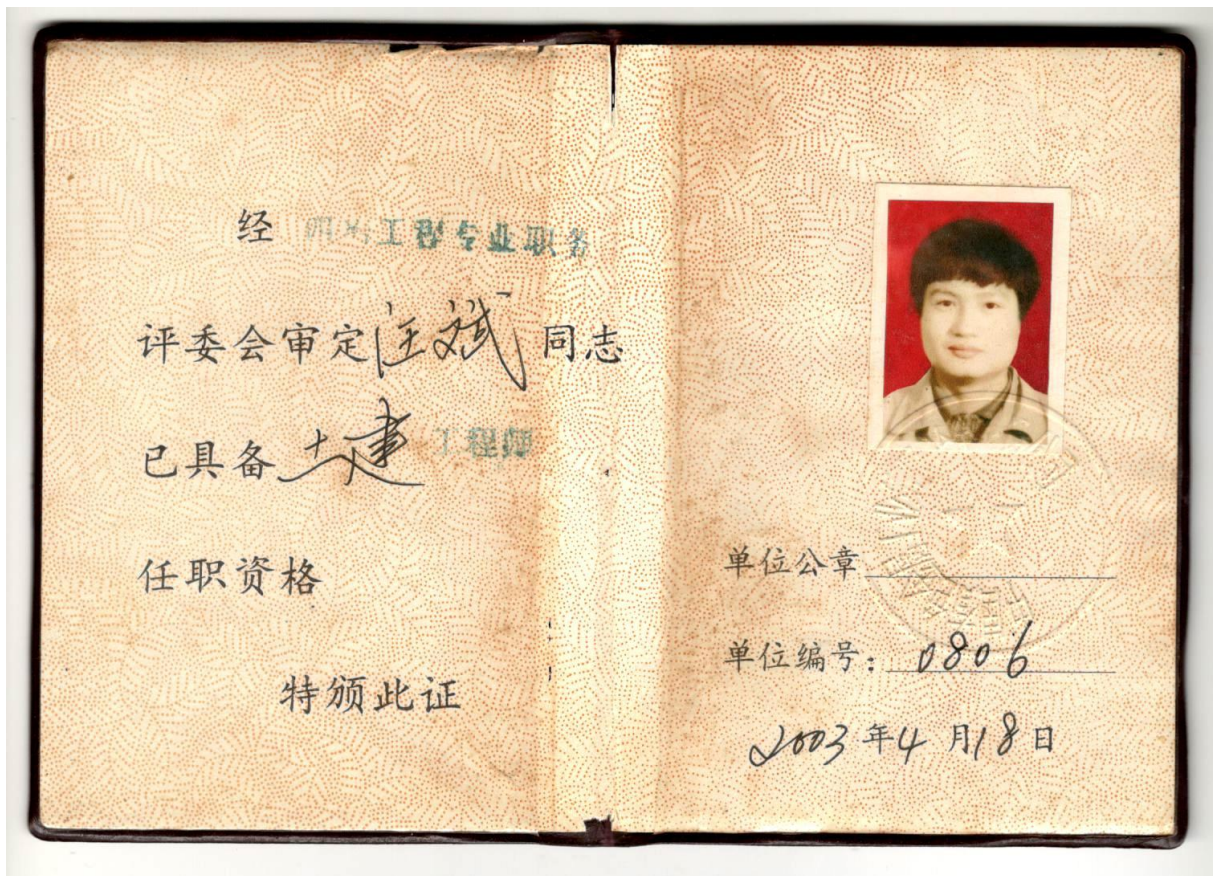 经 工程专业职务
评委会审定汪斌同志
已具备土建 工程师
任职资格
特颁此证
单位公章
单位编号:0806
2003年4月18日